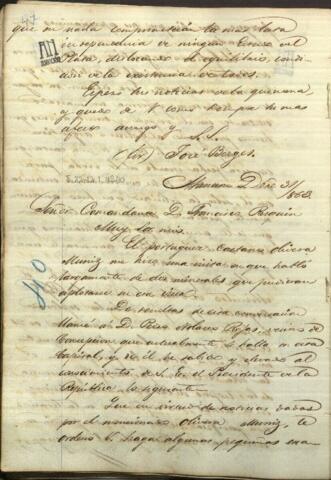 47
que en nada comprometan la mas
independencia de ningun Estado del
Plata, destruccion de equilibrio, condi-
cion de la existencia de todos.
Espero las noticias de la quincena
y quedo de V. como siempre su mas
afmo amigo y S. S.
(fir) José Berges.
Asuncion Dbre 31/863
Señor Comandante D. Francisco
Muy Sr. mio.
El portugues Caetano Olivera
Muniz me hizo una visita en que habló
largamente de los minerales que pudieran
explotarse en esa
De resultas de esta conversacion
llamé a D. Rojas, vecino de
Concepcion que actualmente se halla en esta
Capital, y de él he sabido y elevado al
conocimiento de S. E. el Presidente de la
República lo siguiente.
Que en virtud de noticias dadas
por el mencionado Olivera Muniz, le
ordenó V. hagan algunas pequeñas
40